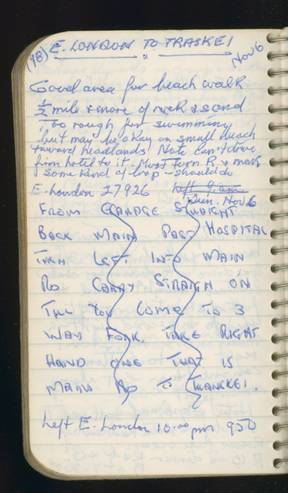 (98) E. LONDON TO TRASKEI
Nov 6
Good area for beach walk
½ mile & more of rock & sand
Too rough for swimming
but may be okay on small beach
toward headlands. Note can't drive
from hotel to it. Must turn R, & mark
some kind of loop - should do
E. London 27926 Left 9 am
Sun. Nov 6
FROM GARAGE STRAIGHT
BACK MAIN PAST HOSPITAL
TURN LEFT INTO MAIN
RD CARRY STRAIGH ON
TILL YOU COME TO 3
WAY FORK. TAKE RIGHT
HAND ONE THAT IS
MAIN RD TO TRANKKEI.
Left E. London 10:00 pm 950